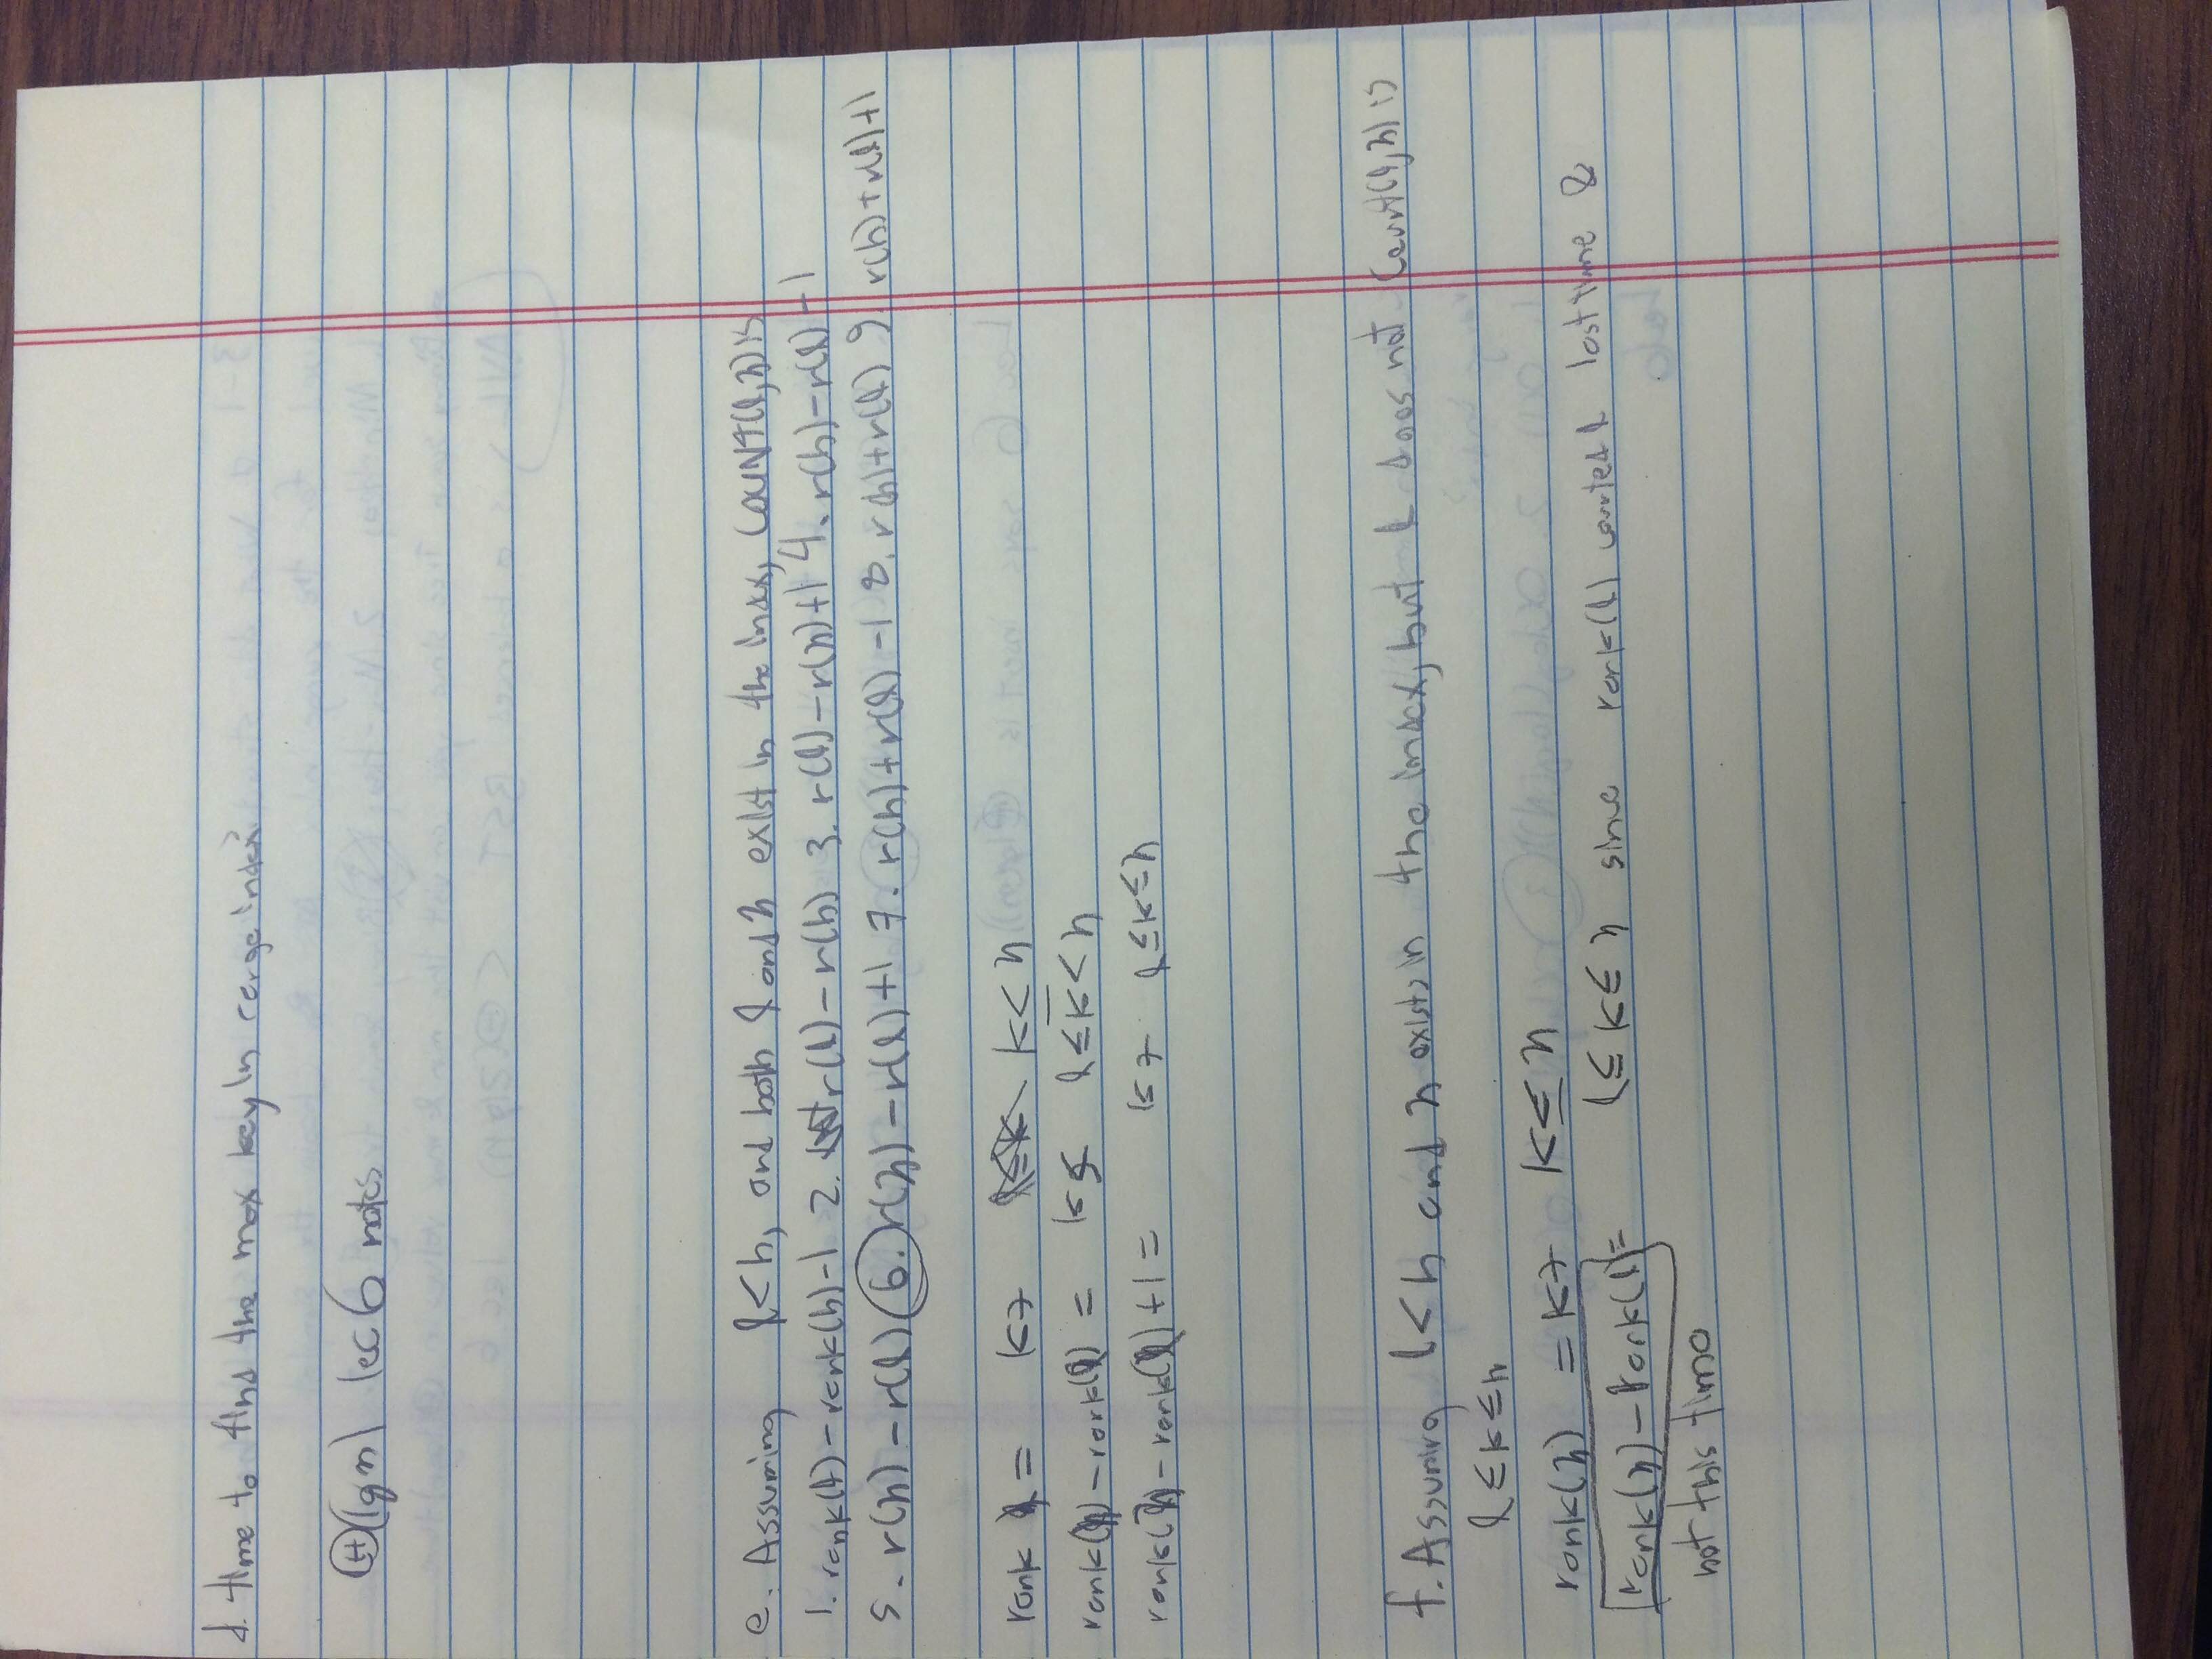 d. time to find the max key in range index?
Θ(lgn) lec 6 notes
e. Assuming l<h, and both l and h exist in the index, COUNT(l,h) is
1. rank(l)-rank(h)-1 2. r(l)-r(h) 3. r(l)-r(h)+1 4. r(h)-r(l)-1
5. r(h)-r(l) 6. r(h)-r(l)+1 7. r(h)+r(l)-1 8. r(h)+r(l) 9. r(h)+r(l)+1
rank = k k<h
rank(h)-rank(l) = k l≤k<h
rank(h)-rank(l)+1= k l≤k≤h
f. Assuming l<h and h exists in the index, but l does not Count(l,h) is
l≤k≤h
rank(h) = k k≤h
rank(h)-rank(l)= l≤k≤h since rank(l) counted l last time &
not this time